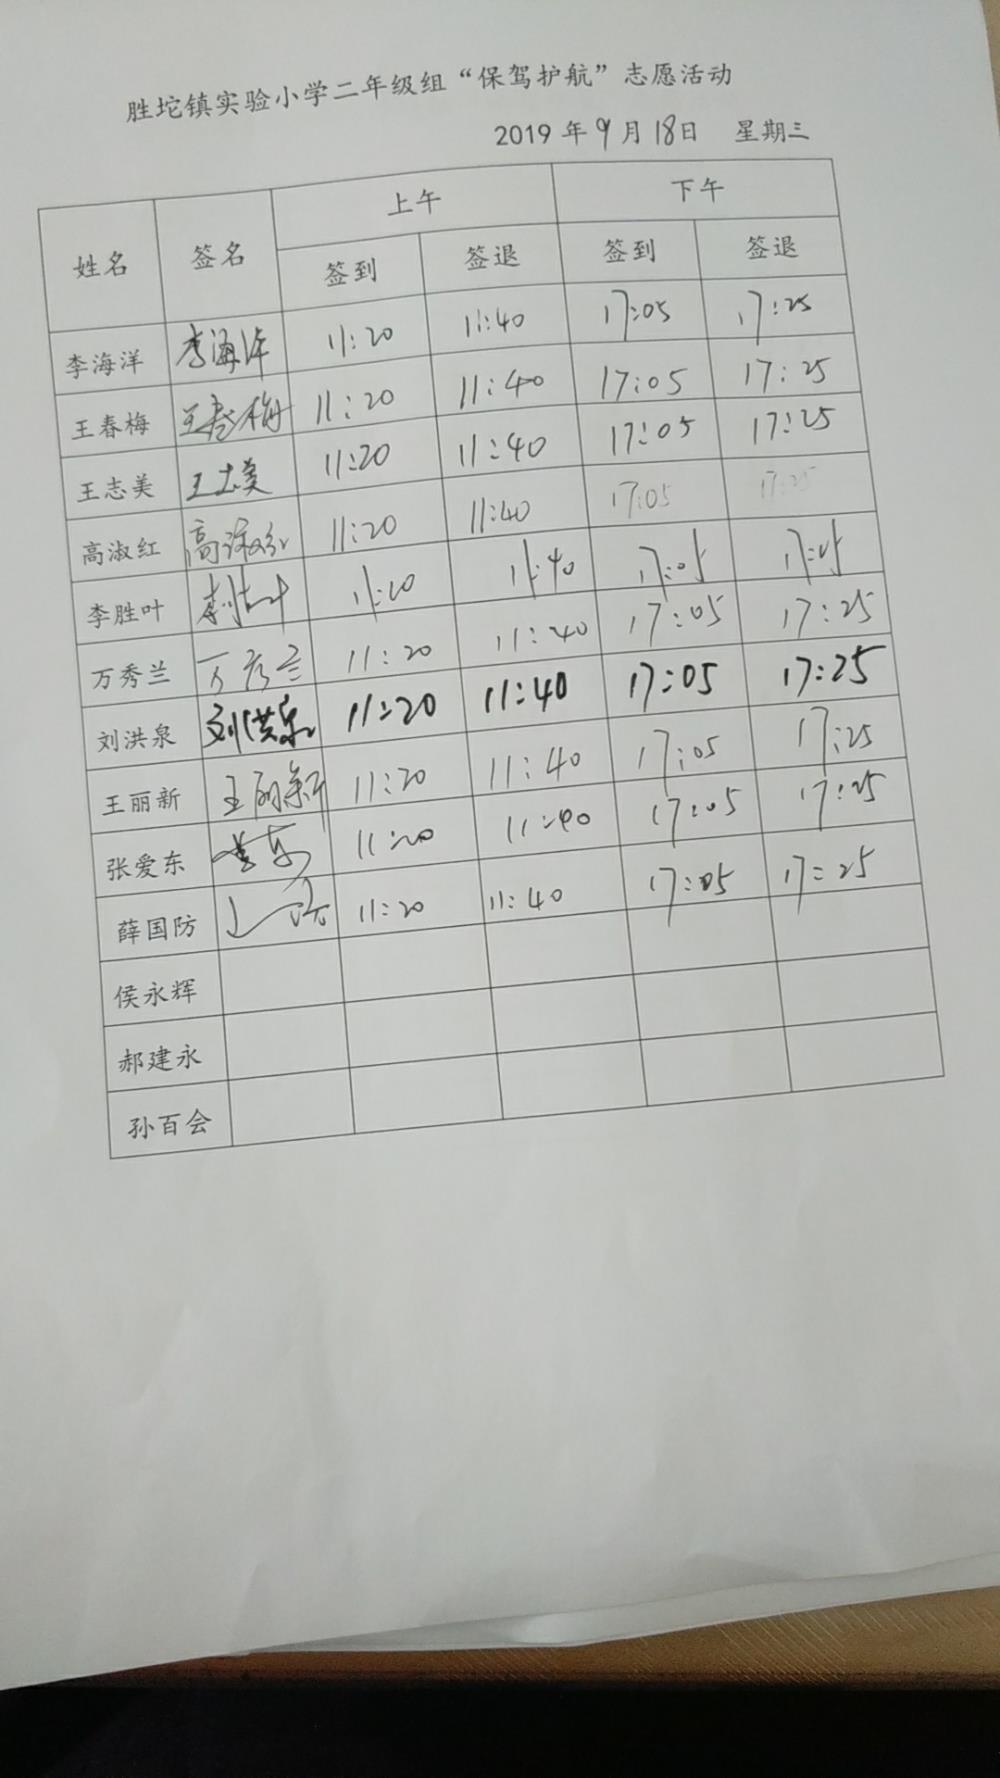 胜坨镇实验小学二年级组“保驾护航”志愿活动
2019年9月18日 星期三
姓名 签名 上午 下午
签到 签退 签到 签退
李海洋 李海洋 11:20 11:40 17:05 17:25
王春梅 王春梅 11:20 11:40 17:05 17:25
王志美 王志美 11:20 11:40 17:05 17:25
高淑红 高淑红 11:20 11:40 17:05 17:25
李胜叶 11:20 11:40 17:05
万秀兰 万秀兰 11:20 11:40 17:05 17:25
刘洪泉 刘洪泉 11:20 11:40 17:05 17:25
王丽新 王丽新 11:20 11:40 17:05 17:25
张爱东 11:20 11:40 17:05 17:25
薛国防 11:20 11:40 17:05 17:25
侯永辉
郝建永
孙百会